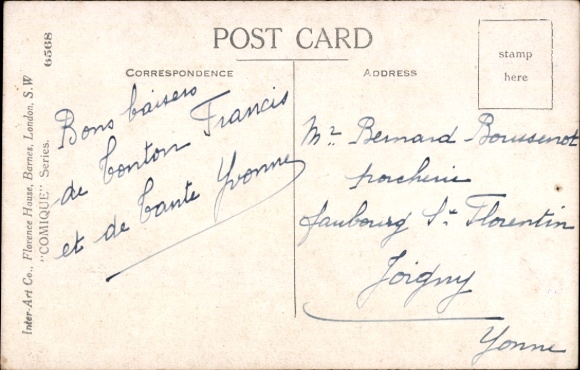 POST CARD
CORRESPONDENCE
ADDRESS
stamp
here
Inter-Art Co., Florence House, Barnes, London, S.W
"COMIQUE" Series.
6568
Bons baisers
de tonton Francis
et de tante Yvonne
Mr Bernard Boussenot
porcherie
faubourg St Florentin
Joigny
Yonne